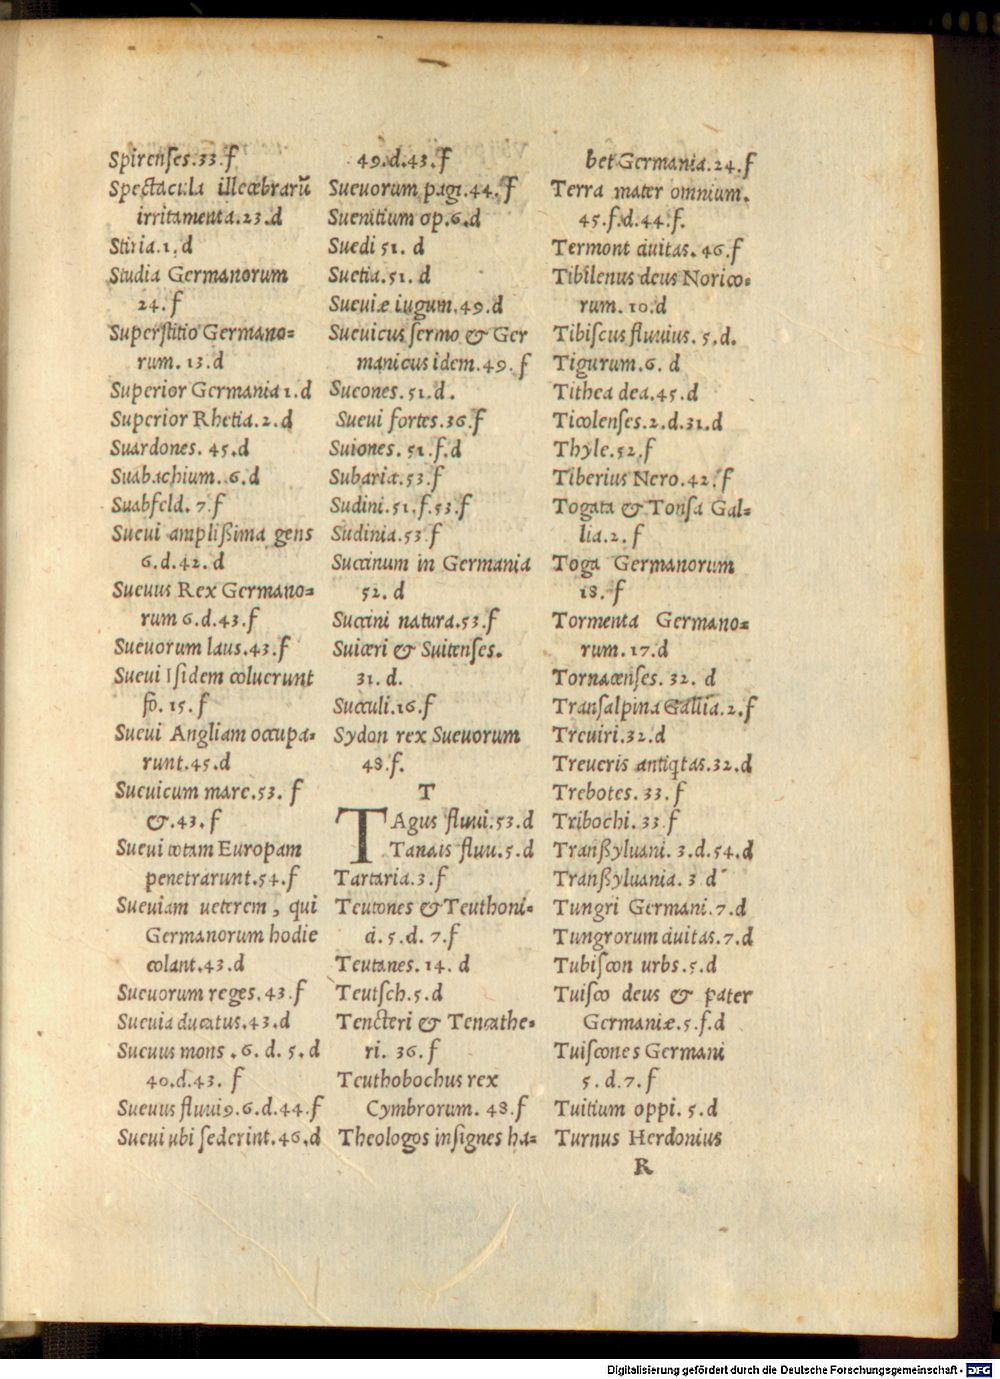 Spirenſes.33.f
Spectacula illecebrarū
irritamenta.23.d
Stiria.1.d
Studia Germanorum
24.f
Superſtitio Germano=
rum.13.d
Superior Germania 1.d
Superior Rhetia.2.d
Suardones. 45.d
Suabachium. 6.d
Suabfeld. 7.f
Sueui ampliſſima gens
6.d.42.d
Sueuus Rex Germano=
rum 6.d.43.f
Sueuorum laus.43.f
Sueui Iſidem coluerunt
fo. 15.f
Sueui Angliam occupa=
runt.45.d
Sueuicum mare.53. f
&.43.f
Sueui totam Europam
penetrarunt.54.f
Sueuiam ueterem, qui
Germanorum hodie
colant.43.d
Sueuorum reges.43.f
Sueuia ducatus.43.d
Sueuus mons .6. d. 5.d
40.d.43. f
Sueuus fluuiꝰ.6.d.44.f
Sueui ubi ſederint.46.d
49.d.43.f
Sueuorum pagi.44.f
Suenitium op.6.d
Suedi 51. d
Suetia.51. d
Sueuiæ iugum.49.d
Sueuicus ſermo & Ger
manicus idem.49. f
Sueones.51.d.
Sueui fortes.36.f
Suiones. 51.f.d
Subaria.53.f
Sudini.51.f.53.f
Sudinia.53 f
Succinum in Germania
52. d
Succini natura.53.f
Suiceri & Suitenſes.
31. d.
Succuli.16.f
Sydon rex Sueuorum
48.f.
T
TAgus fluui.53.d
Tanais fluu.5.d
Tartaria.3.f
Teutones & Teuthoni=
ci. 5.d. 7.f
Teutanes.14. d
Teutſch.5.d
Tencteri & Tencathe=
ri. 36.f
Teuthobochus rex
Cymbrorum. 48.f
Theologos inſignes ha=
bet Germania.24.f
Terra mater omnium.
45.f.d.44.f.
Termont ciuitas.46.f
Tibilenus deus Norico=
rum. 10.d
Tibiſcus fluuius. 5.d.
Tigurum.6. d
Tithea dea.45.d
Ticolenſes.2.d.31.d
Thyle.52.f
Tiberius Nero.42.f
Togata & Tonſa Gal=
lia.2.f
Toga Germanorum
18.f
Tormenta Germano=
rum.17.d
Tornacenſes. 32. d
Tranſalpina Gallia.2.f
Treuiri.32.d
Treueris antiqtas.32.d
Trebotes. 33.f
Tribochi. 33.f
Tranſſyluani. 3.d.54.d
Tranſſyluania. 3 d
Tungri Germani.7.d
Tungrorum ciuitas.7.d
Tubiſcon urbs.5.d
Tuiſco deus & pater
Germaniæ.5.f.d
Tuiſcones Germani
5.d.7.f
Tuitium oppi. 5.d
Turnus Herdonius
R
Digitalisierung gefördert durch die Deutsche Forschungsgemeinschaft - DFG